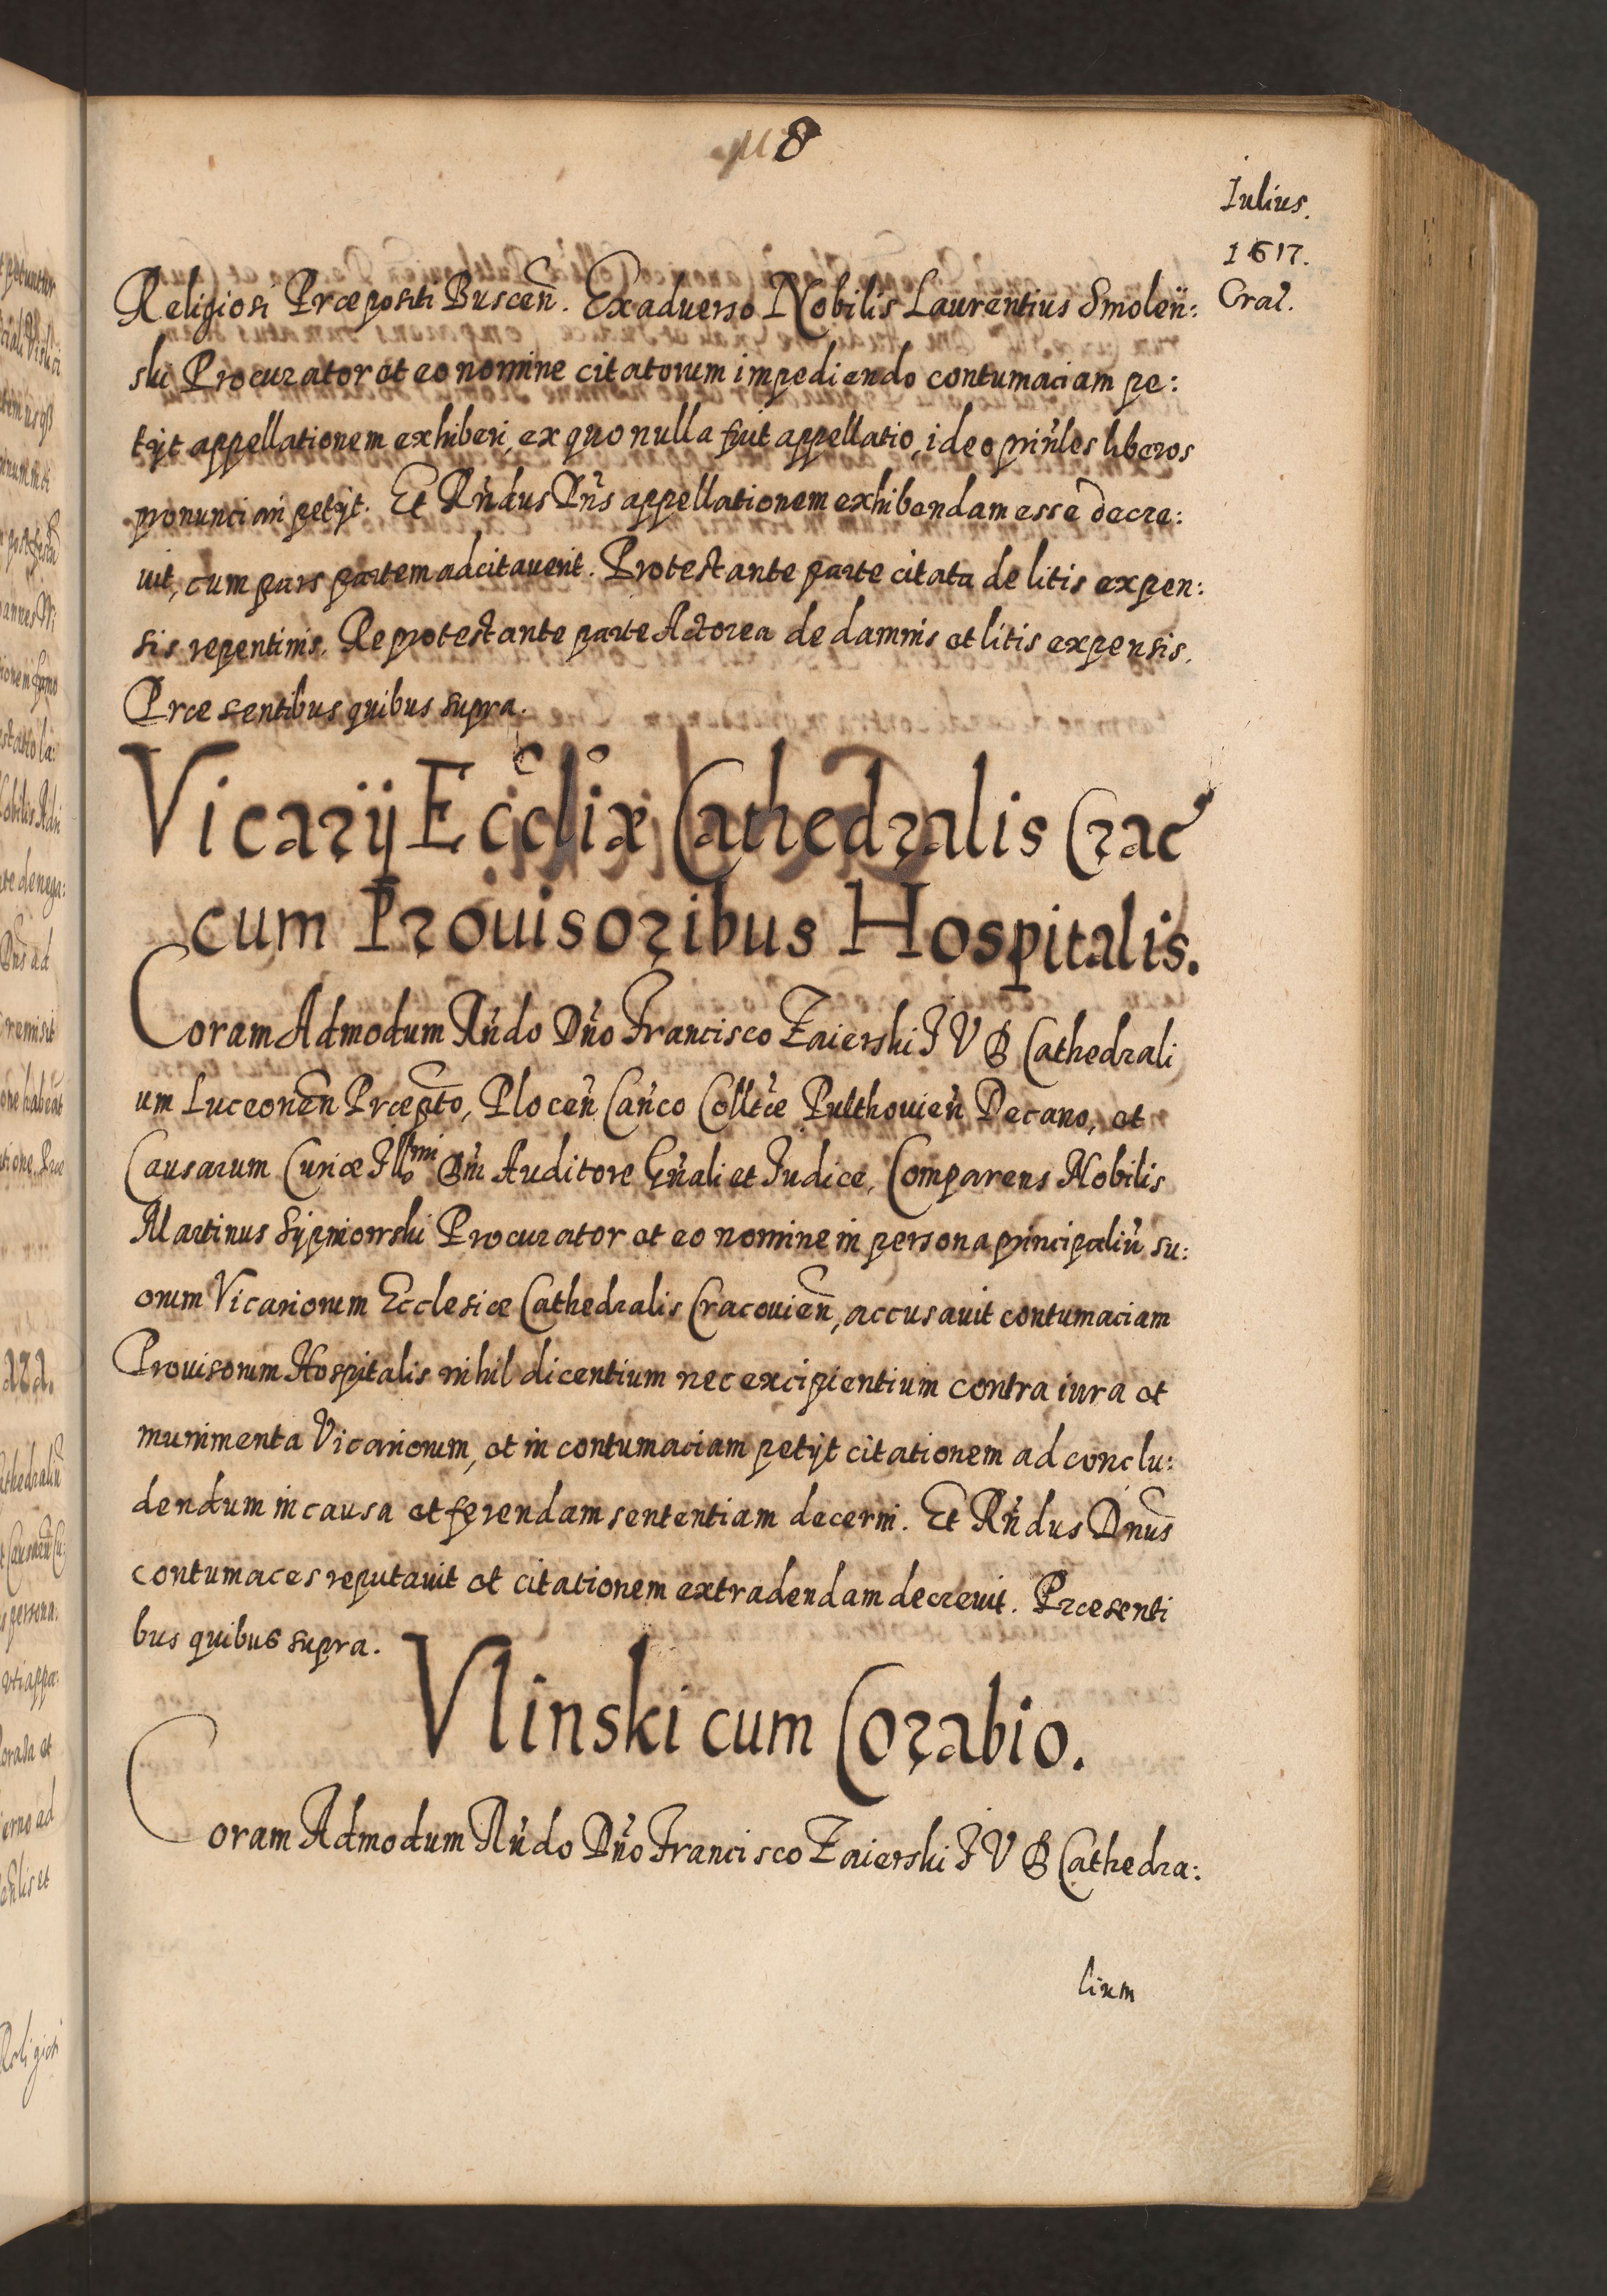 118
Iulius.
1617.
Crac.
Religiosi Præpositi Buscen̄. Ex aduerso Nobilis Laurentius Smoleń:
ski Procurator et eo nomine citatorum impediendo contumaciam pe:
tijt appellationem exhiberi, ex quo nulla fuit appellatio, ideo prin̄les liberos
pronunciari petijt. Et Rn̄dus Dn̄s appellationem exhibendam esse decre:
uit, cum pars partem adcitauerit. Protestante parte citata de litis expen:
sis repentinis. Reprotestante parte Actorea de damnis et litis expensis.
Præsentibus quibus supra.
Vicarij Ecc̄liæ Cathedralis Crac̄
cum Prouisoribus Hospitalis.
Coram Admodum Rn̄do Dn̄o Francisco Zaierski I V D Cathedrali
um Luceoneñ Præpto, Plocen̄ Can̄co Colltæ Pulthouien̄ Decano, et
Causarum Curiæ Illmi Dn̄i Auditore Gn̄ali et Iudice, Comparens Nobilis
Martinus Sijpniowski Procurator et eo nomine in persona principaliū su:
orum Vicariorum Ecclesiæ Cathedralis Cracouien̄, accusauit contumaciam
Prouisorum Hospitalis nihil dicentium nec excipientium contra iura et
munimenta Vicariorum, et in contumaciam petijt citationem ad conclu:
dendum in causa et ferendam sententiam decerni. Et Rn̄dus Dn̄us
contumaces reputauit et citationem extradendam decreuit. Præsenti
bus quibus supra.
Vlinski cum Corabio.
Coram Admodum Rn̄do Dn̄o Francisco Zaierski I V D Cathedra:
lium